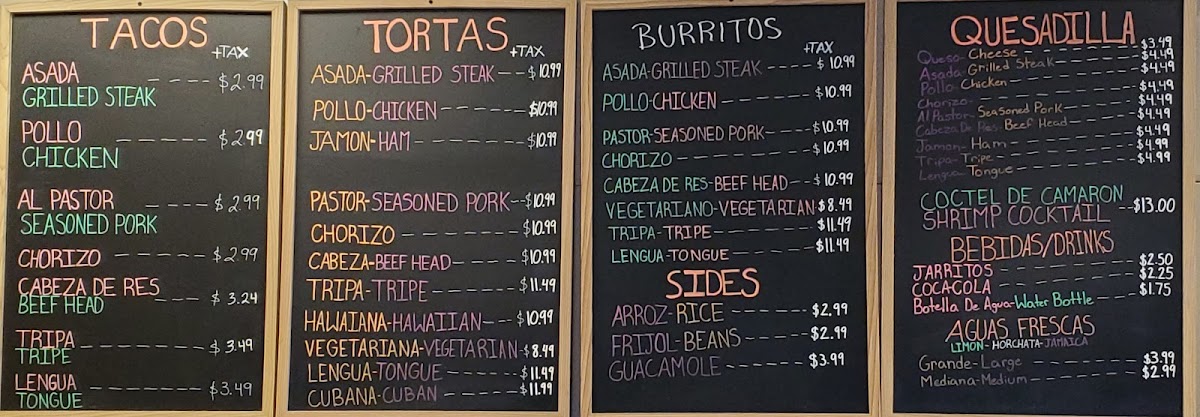 TACOS
+TAX
ASADA ---- $2.99
GRILLED STEAK
POLLO ------ $2.99
CHICKEN
AL PASTOR ---- $2.99
SEASONED PORK
CHORIZO ------ $2.99
CABEZA DE RES
BEEF HEAD --- $3.24
TRIPA
TRIPE ------ $3.49
LENGUA -------- $3.49
TONGUE
TORTAS
+TAX
ASADA-GRILLED STEAK --- $10.99
POLLO-CHICKEN ------- $10.99
JAMON-HAM -------- $10.99
PASTOR-SEASONED PORK--$10.99
CHORIZO -------- $10.99
CABEZA-BEEF HEAD---- $10.99
TRIPA-TRIPE ------ $11.49
HAWAIANA-HAWAIIAN--- $10.99
VEGETARIANA-VEGETARIAN-$8.49
LENGUA-TONGUE ------ $11.99
CUBANA-CUBAN ------ $11.99
BURRITOS
+TAX
ASADA-GRILLED STEAK ---- $10.99
POLLO-CHICKEN ------- $10.99
PASTOR-SEASONED PORK---- $10.99
CHORIZO --------- $10.99
CABEZA DE RES-BEEF HEAD--$10.99
VEGETARIANO-VEGETARIAN-$8.49
TRIPA-TRIPE ------- $11.49
LENGUA-TONGUE ------ $11.49
SIDES
ARROZ-RICE ----- $2.99
FRIJOL-BEANS ---- $2.99
GUACAMOLE ------ $3.99
QUESADILLA
Queso-Cheese ------ $3.49
Asada-Grilled Steak ---- $4.49
Pollo-Chicken ------ $4.49
Chorizo- ------- $4.49
Al Pastor-Seasoned Pork--- $4.49
Cabeza De Res-Beef Head--- $4.49
Jamon-Ham ------ $4.49
Tripa-Tripe ------ $4.99
Lengua-Tongue ------ $4.99
COCTEL DE CAMARON
SHRIMP COCKTAIL --$13.00
BEBIDAS/DRINKS
JARRITOS -------- $2.50
COCA-COLA -------- $2.25
Botella De Agua-Water Bottle---- $1.75
AGUAS FRESCAS
LIMON-HORCHATA-JAMAICA
Grande-Large ------- $3.99
Mediana-Medium ------- $2.99